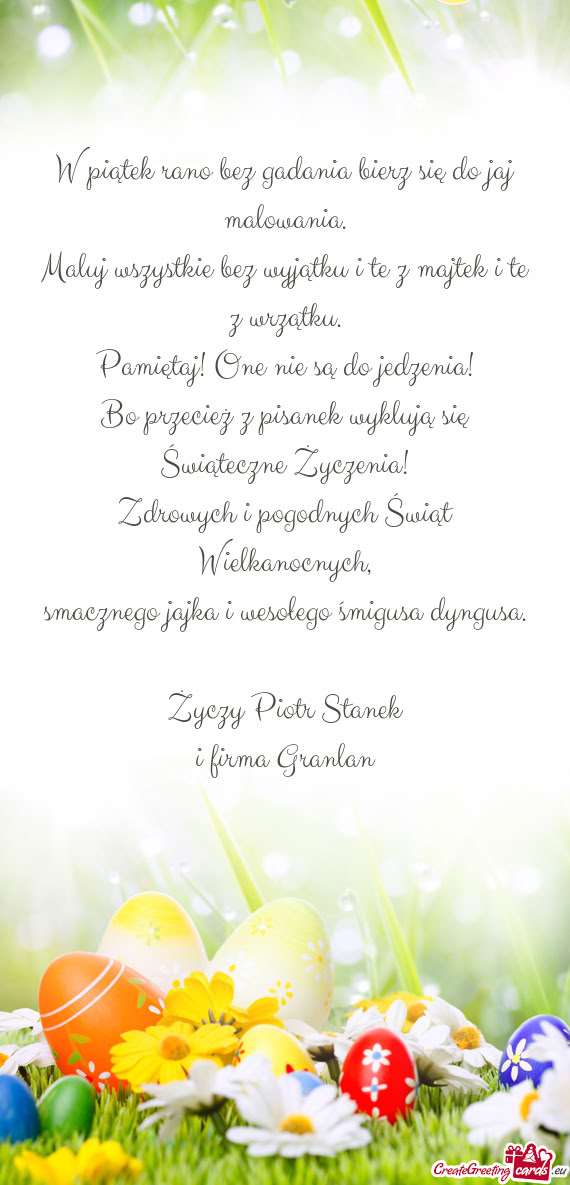 W piątek rano bez gadania bierz się do jaj
malowania.
Maluj wszystkie bez wyjątku i te z majtek i te
z wrzątku.
Pamiętaj! One nie są do jedzenia!
Bo przecież z pisanek wyklują się
Świąteczne Życzenia!
Zdrowych i pogodnych Świąt
Wielkanocnych,
smacznego jajka i wesołego śmigusa dyngusa.
Życzy Piotr Stanek
i firma Granlan
CreateGreetingcards.eu